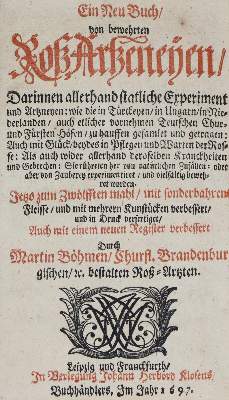 Ein Neu Buch/
von bewehrten
Roß-Artzeneyen/
Darinnen allerhand statliche Experiment
und Artzneyen: wie die in Türckeyen/ in Ungarn/ in Nie-
derlanden/ auch etlicher vornehmen Teutschen Chur-
und Fürsten Höfen/ zu hauffen gesamlet und getragen:
Auch mit Glück/ beydes in Pflegen und Warten der Ros-
se: Als auch wider allerhand deroselben Kranckheiten
und Gebrechen: Sie rühren her von natürlichen Zufällen: oder
aber von Zauberey experimentiret/ und vielfältig beweh-
ret worden.
Jetzo zum Zwölfften mahl/ mit sonderbahren
Fleisse/ und mit mehrern Kunstücken verbessert/
und in Druck verfertiget/
Auch mit einem neuen Register verbessert
Durch
Martin Böhmen/ Churfl. Brandenbur-
gischen/ ꝛc. bestalten Roß-Artzten.
Leipzig und Franckfurth/
In Verlegung Johann Herbord Klosens/
Buchhändlers, Im Jahr 1697.